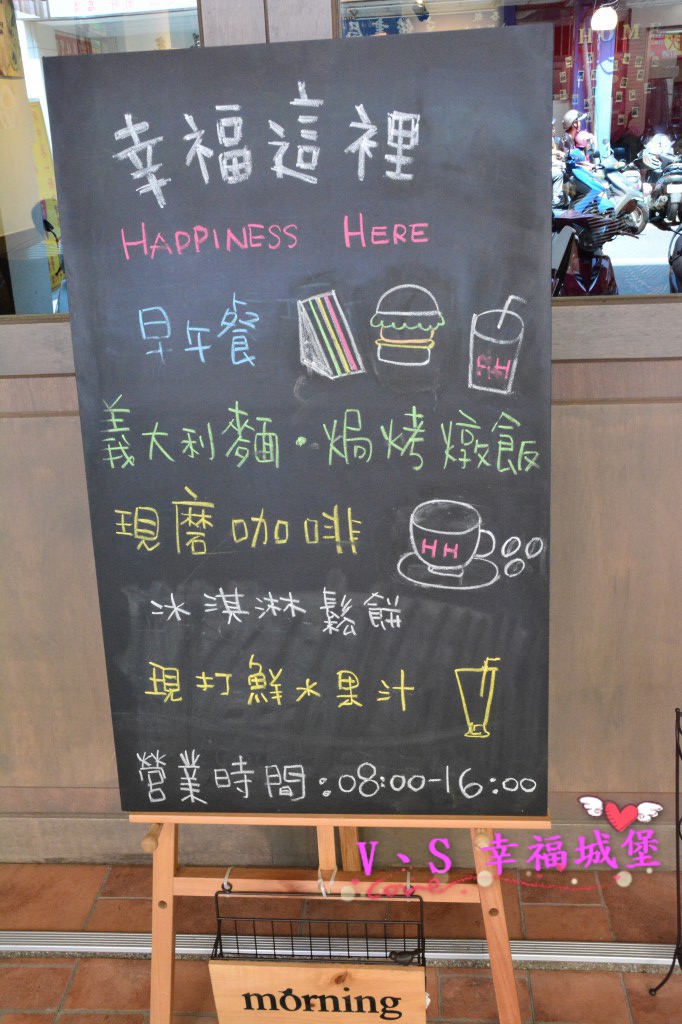 幸福這裡
HAPPINESS HERE
早午餐
HH
義大利麵・焗烤燉飯
現磨咖啡
HH
冰淇淋鬆餅
現打鮮水果汁
營業時間:08:00-16:00
V、S 幸福城堡
Love
morning